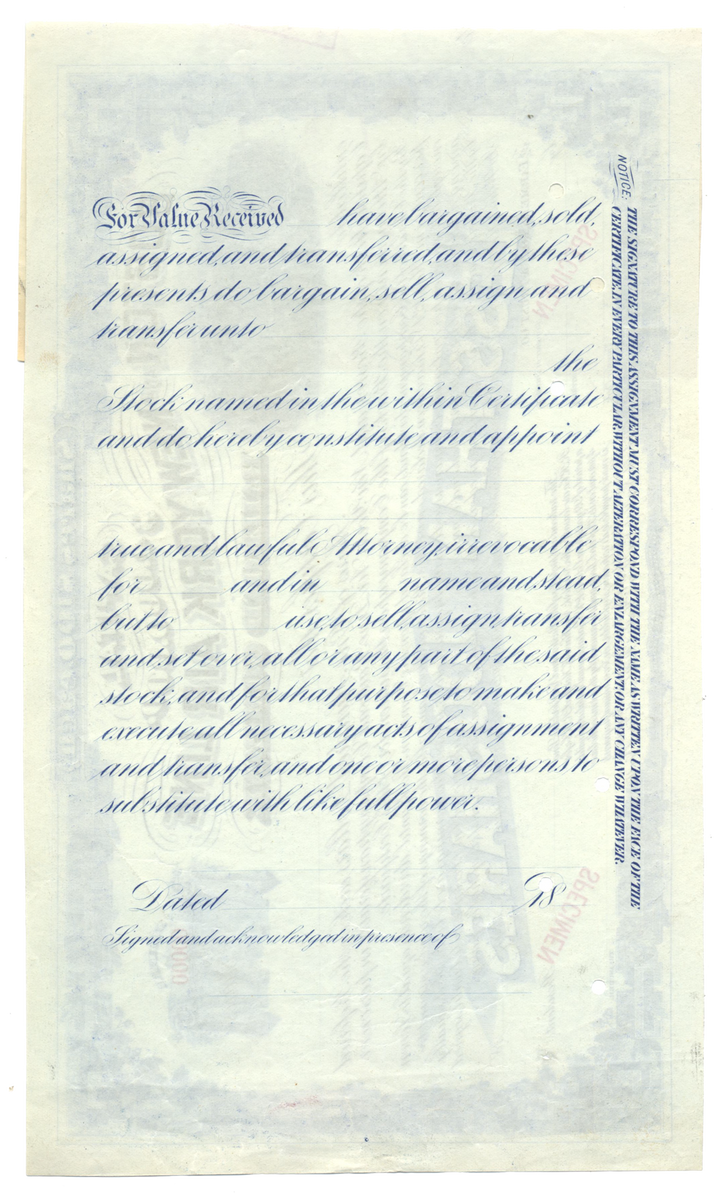 For Value Received have bargained, sold,
assigned, and transferred, and by these
presents do bargain, sell, assign and
transfer unto
the
Stock named in the within Certificate
and do hereby constitute and appoint
true and lawful Attorney, irrevocable
for and in name and stead,
but to use, to sell, assign, transfer
and set over, all or any part of the said
stock; and for that purpose to make and
execute all necessary acts of assignment
and transfer, and one or more persons to
substitute with like full power.
Dated 18
Signed and acknowledged in presence of
NOTICE: THE SIGNATURE TO THIS ASSIGNMENT MUST CORRESPOND WITH THE NAME AS WRITTEN UPON THE FACE OF THE
CERTIFICATE, IN EVERY PARTICULAR, WITHOUT ALTERATION OR ENLARGEMENT, OR ANY CHANGE WHATEVER.
SPECIMEN
SPECIMEN